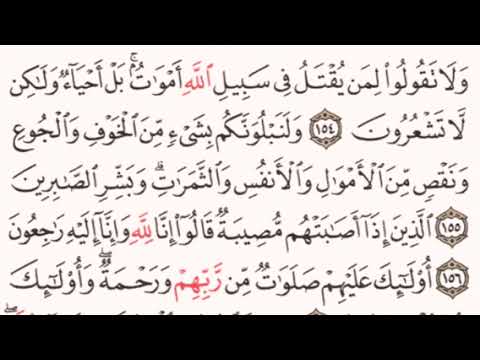 وَلَا تَقُولُوا۟ لِمَن يُقْتَلُ فِى سَبِيلِ ٱللَّهِ أَمْوَٰتٌۢ ۚ بَلْ أَحْيَآءٌ وَلَٰكِن
لَّا تَشْعُرُونَ ١٥٤ وَلَنَبْلُوَنَّكُم بِشَىْءٍ مِّنَ ٱلْخَوْفِ وَٱلْجُوعِ
وَنَقْصٍ مِّنَ ٱلْأَمْوَٰلِ وَٱلْأَنفُسِ وَٱلثَّمَرَٰتِ ۗ وَبَشِّرِ ٱلصَّٰبِرِينَ
١٥٥ ٱلَّذِينَ إِذَآ أَصَٰبَتْهُم مُّصِيبَةٌ قَالُوٓا۟ إِنَّا لِلَّهِ وَإِنَّآ إِلَيْهِ رَٰجِعُونَ
١٥٦ أُو۟لَٰٓئِكَ عَلَيْهِمْ صَلَوَٰتٌ مِّن رَّبِّهِمْ وَرَحْمَةٌ ۖ وَأُو۟لَٰٓئِكَ